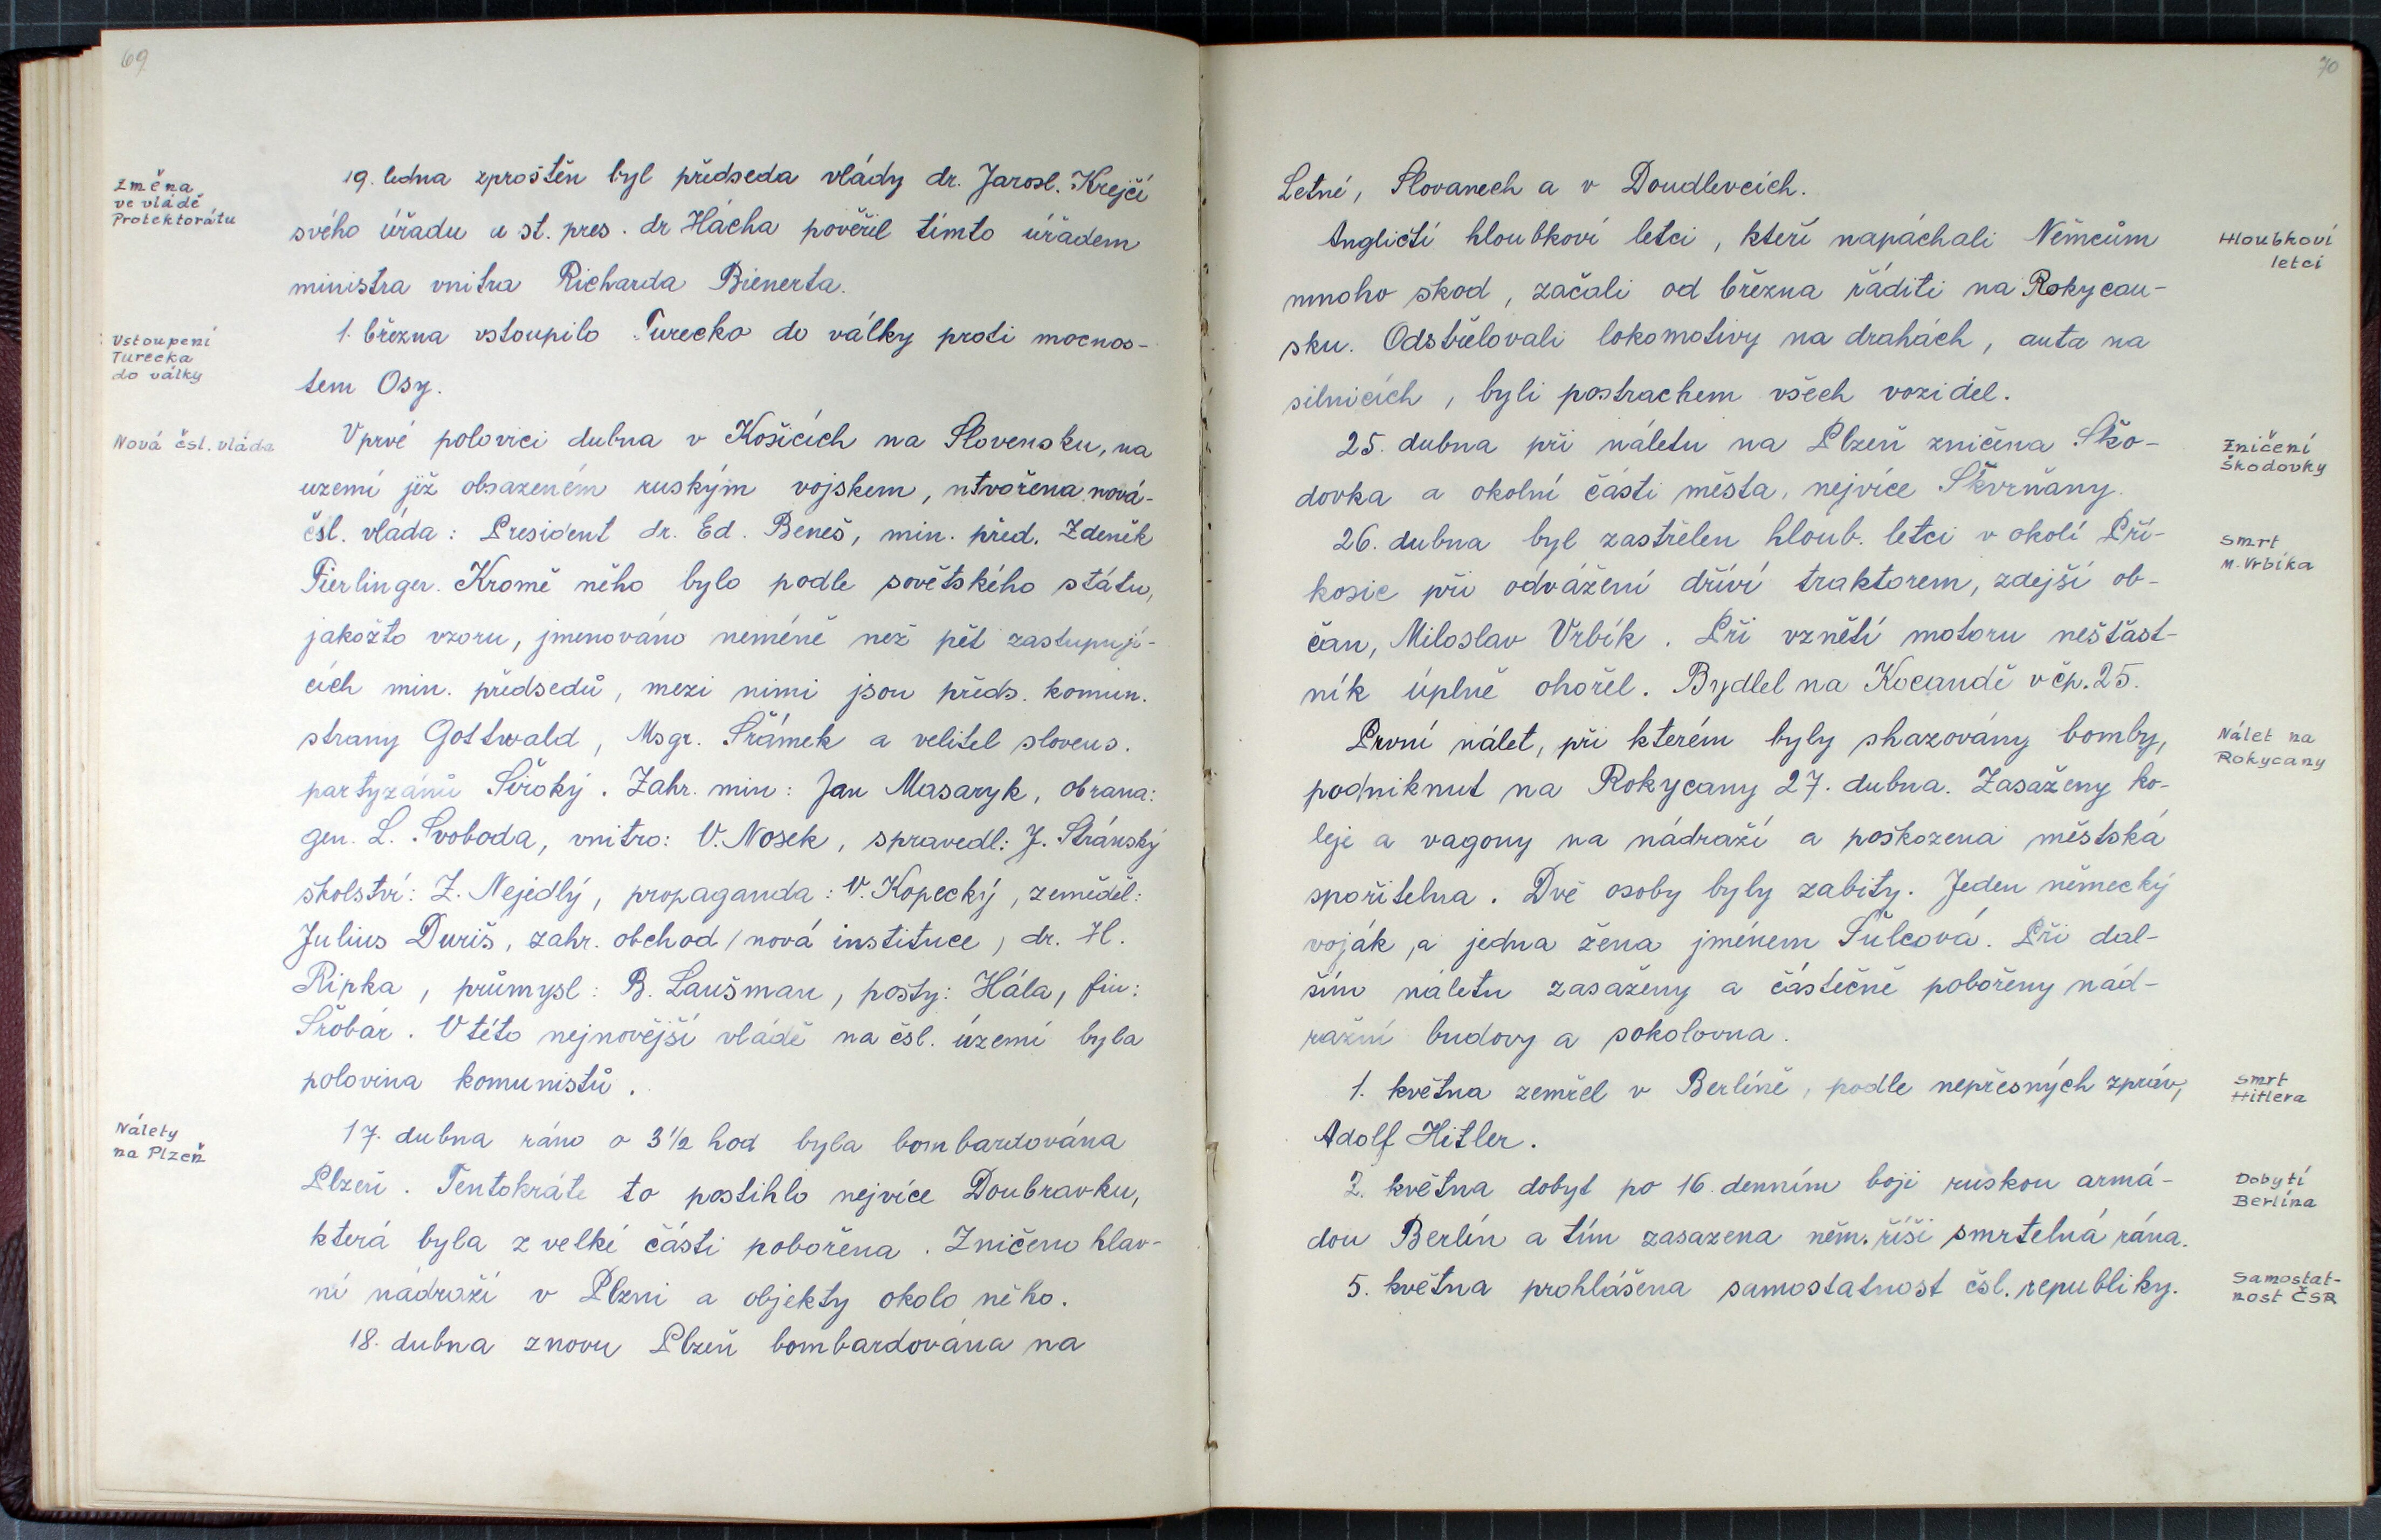 69
Změna
ve vládě
Protektorátu
19. ledna zproštěn byl předseda vlády dr. Jarosl. Krejčí
svého úřadu a st. pres. dr Hácha pověřil tímto úřadem
ministra vnitra Richarda Bienerta.
Vstoupení
Turecka
do války
1. března vstoupilo Turecko do války proti mocnos-
tem Osy.
Nová čsl. vláda
V prvé polovici dubna v Košicích na Slovensku, na
uzemí již obsazeném ruským vojskem, utvořena nová
čsl. vláda: President dr. Ed. Beneš, min. před. Zdeněk
Fierlinger. Kromě něho bylo podle sovětského státu,
jakožto vzoru, jmenováno neméně než pět zastupují-
cích min. předsedů, mezi nimi jsou předs. komun.
strany Gottwald, Msgr. Šrámek a velitel slovens.
partyzánů Široký. Zahr. min: Jan Masaryk, obrana:
gen. L. Svoboda, vnitro: V. Nosek, spravedl: J. Stránský
školství: Z. Nejedlý, propaganda: V. Kopecký, zeměděl:
Julius Duriš, zahr. obchod /nová instituce, dr. H.
Ripka, průmysl: B. Laušman, posty: Hála, fin:
Šrobár. V této nejnovější vládě na čsl. území byla
polovina komunistů.
Nálety
na Plzeň
17. dubna ráno o 3 1/2 hod byla bombardována
Plzeň. Tentokráte to postihlo nejvíce Doubravku,
která byla z velké části pobořena. Zničeno hlav-
ní nádraží v Plzni a objekty okolo něho.
18. dubna znovu Plzeň bombardována na
70
Letné, Slovanech a v Doudlevcích.
Angličtí hloubkoví letci, kteří napáchali Němcům
mnoho škod, začali od března řáditi na Rokycan-
sku. Odstřelovali lokomotivy na drahách, auta na
silnicích, byli postrachem všech vozidel.
Hloubkoví
letci
25. dubna při náletu na Plzeň zničena Ško-
dovka a okolní části města, nejvíce Škvrňany.
Zničení
Škodovky
26. dubna byl zastřelen hloub. letci v okolí Pří-
kosic při odvážení dříví traktorem, zdejší ob-
čan, Miloslav Vrbík. Při vznětí motoru nešťast-
ník úplně ohořel. Bydlel na Kocandě v čp. 25.
Smrt
M. Vrbíka
První nálet, při kterém byly shazovány bomby,
podniknut na Rokycany 27. dubna. Zasaženy ko-
leje a vagony na nádraží a poškozena městská
spořitelna. Dvě osoby byly zabity. Jeden německý
voják, a jedna žena jménem Šulcová. Při dal-
ším náletu zasaženy a částečně pobořeny nád-
ražní budovy a sokolovna.
Nálet na
Rokycany
1. května zemřel v Berlíně, podle nepřesných zpráv,
Adolf Hitler.
Smrt
Hitlera
2. května dobyt po 16. denním boji ruskou armá-
dou Berlín a tím zasazena něm. říši smrtelná rána.
Dobytí
Berlína
5. května prohlášena samostatnost čsl. republiky.
Samostat-
nost ČSR